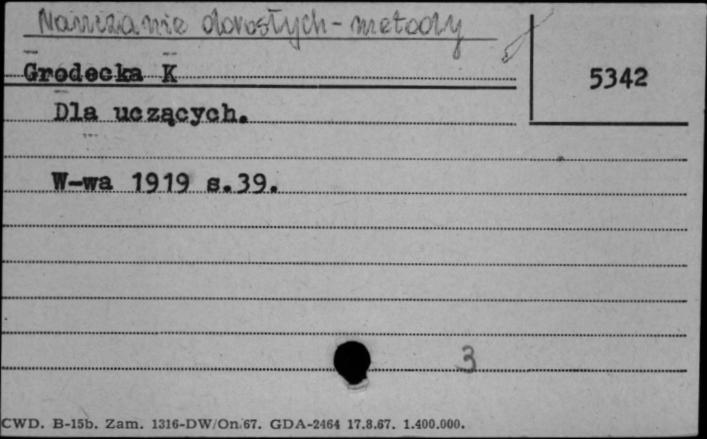 Nauczanie dorosłych - metody
Grodecka K
5342
Dla uczących.
W-wa 1919 s.39.
3
CWD. B-15b. Zam. 1316-DW/On.67. GDA-2464 17.8.67. 1.400.000.